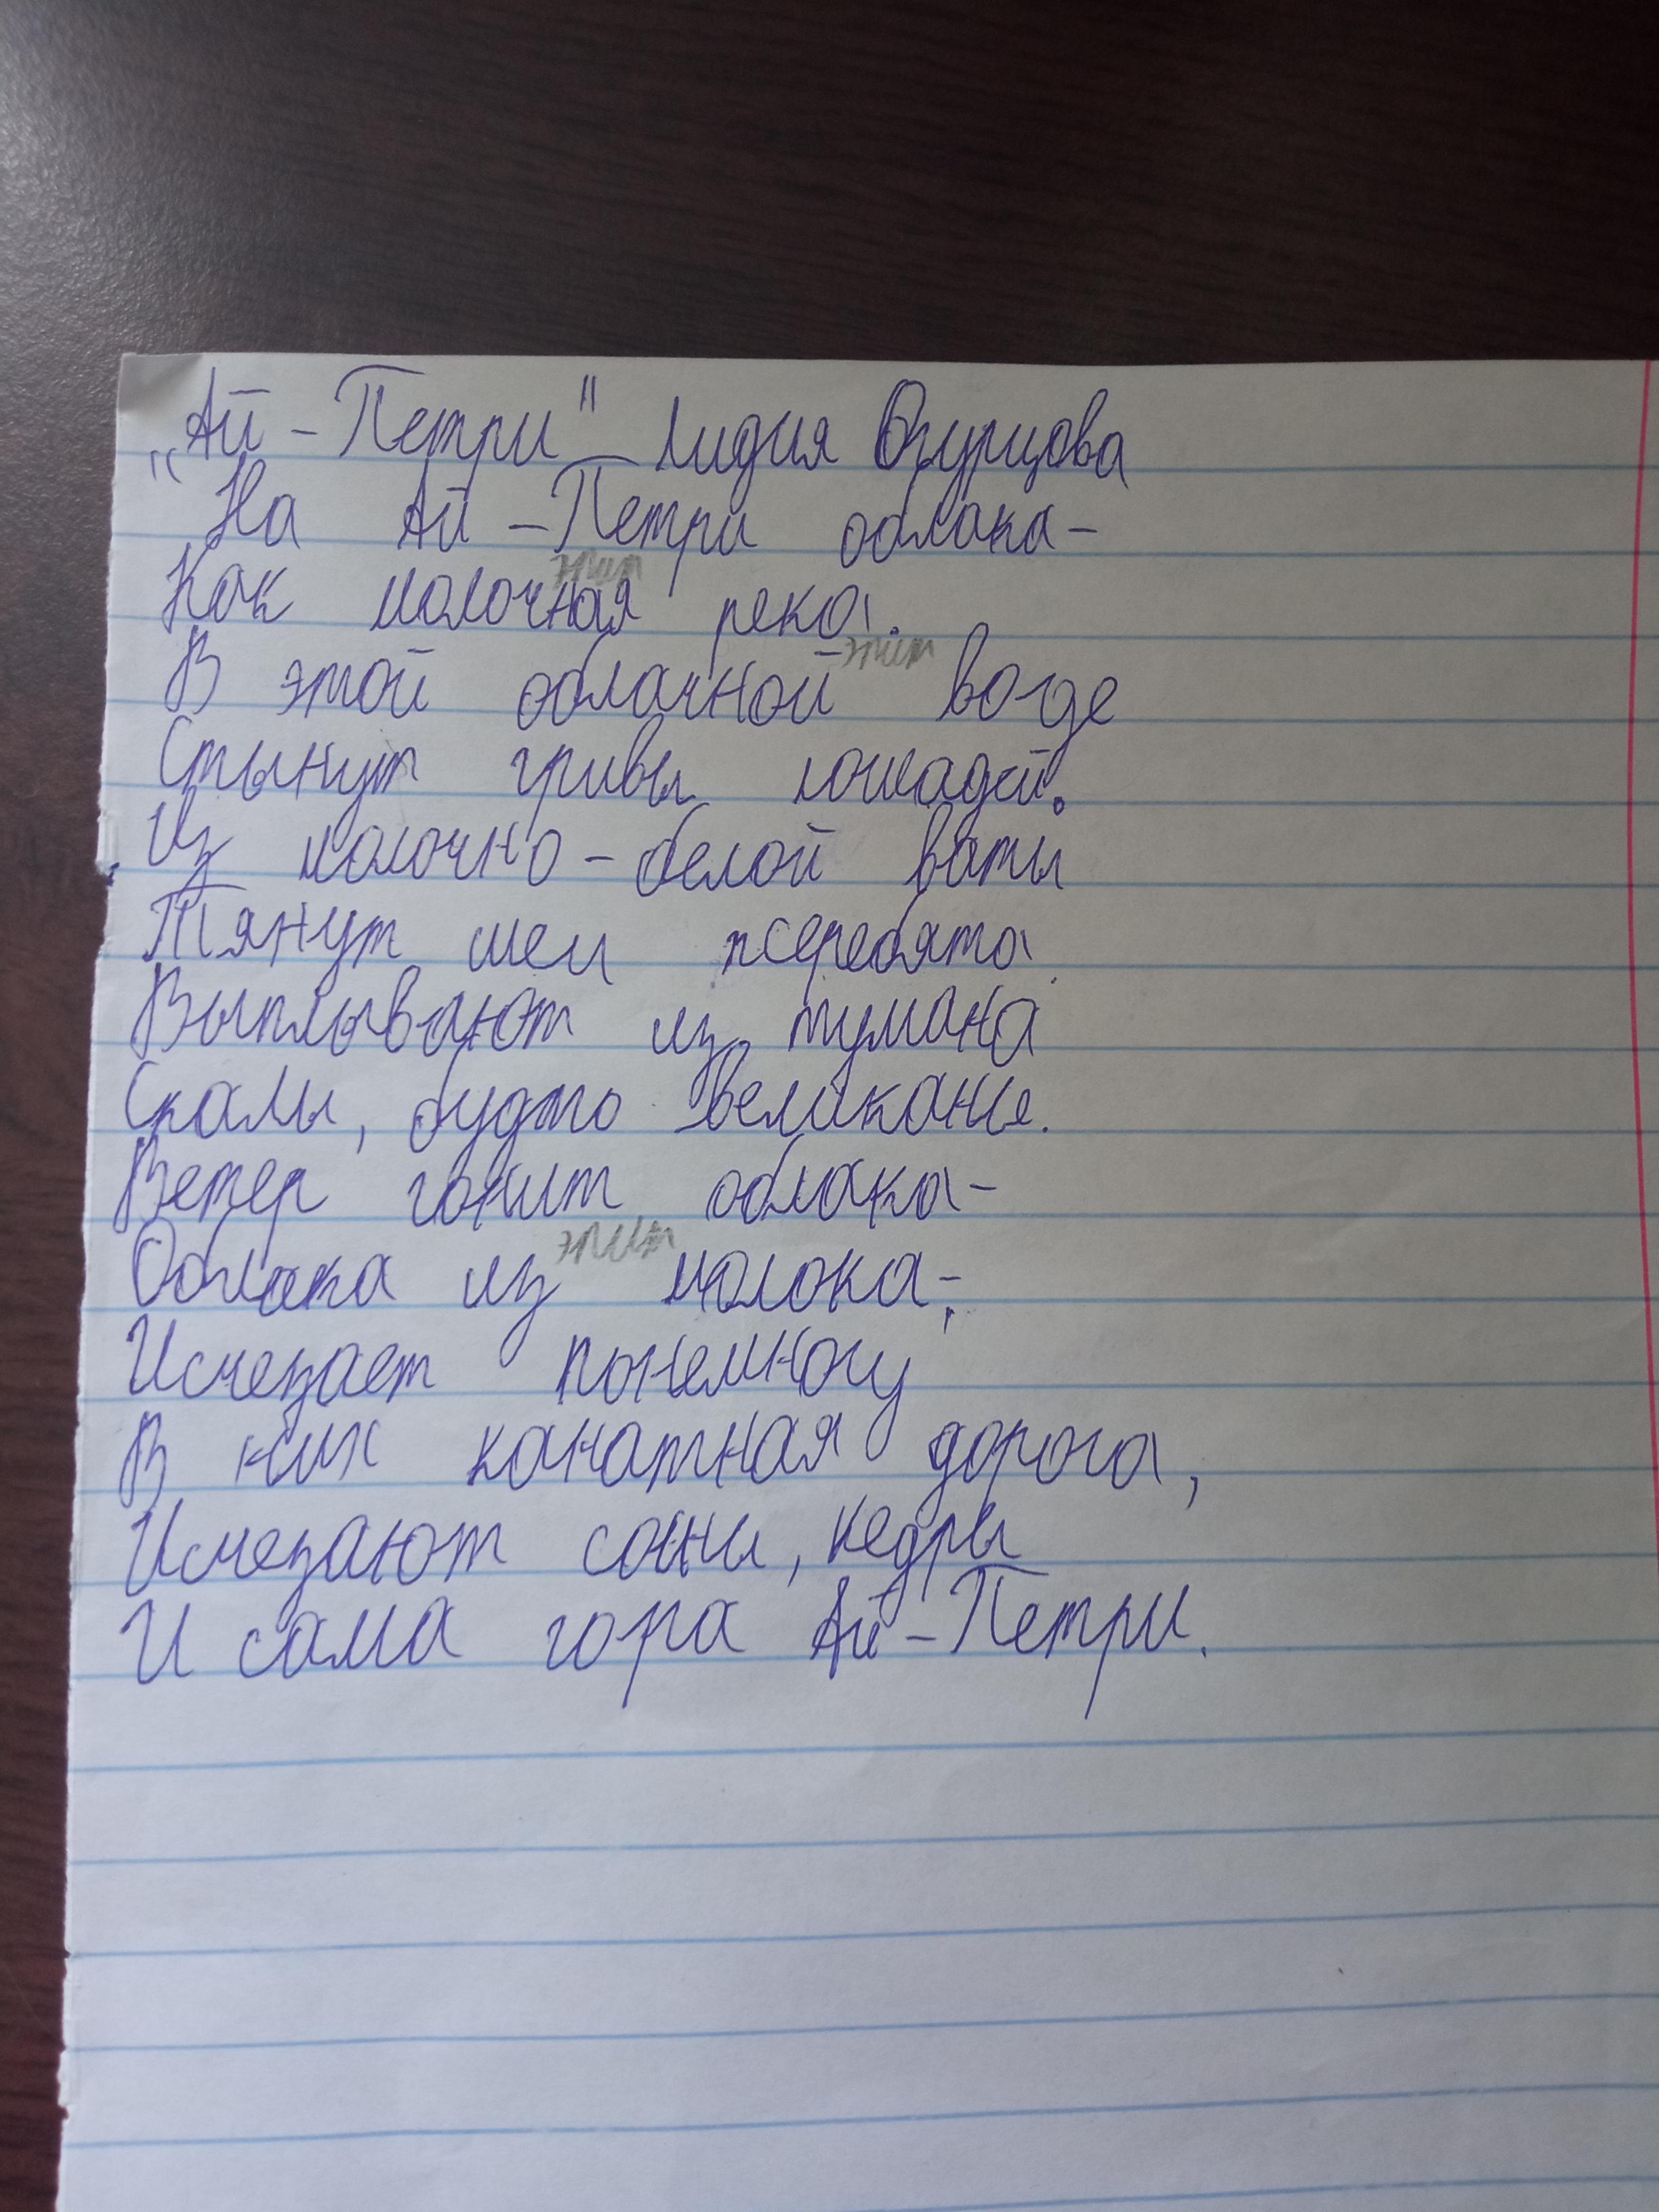 „Ай-Петри" Лидия Огурцова
На Ай-Петри облака-
эпит
Как молочная река.
эпит
В этой облачной воде
Стынут гривы лошадей.
Из молочно-белой ваты
Тянут шеи жеребята
Выплывают из тумана
Скалы, будто великаны.
Ветер гонит облака-
эпит
Облака из молока;
Исчезает понемногу
В них канатная дорога,
Исчезают сосны, кедры
И сама гора Ай-Петри.